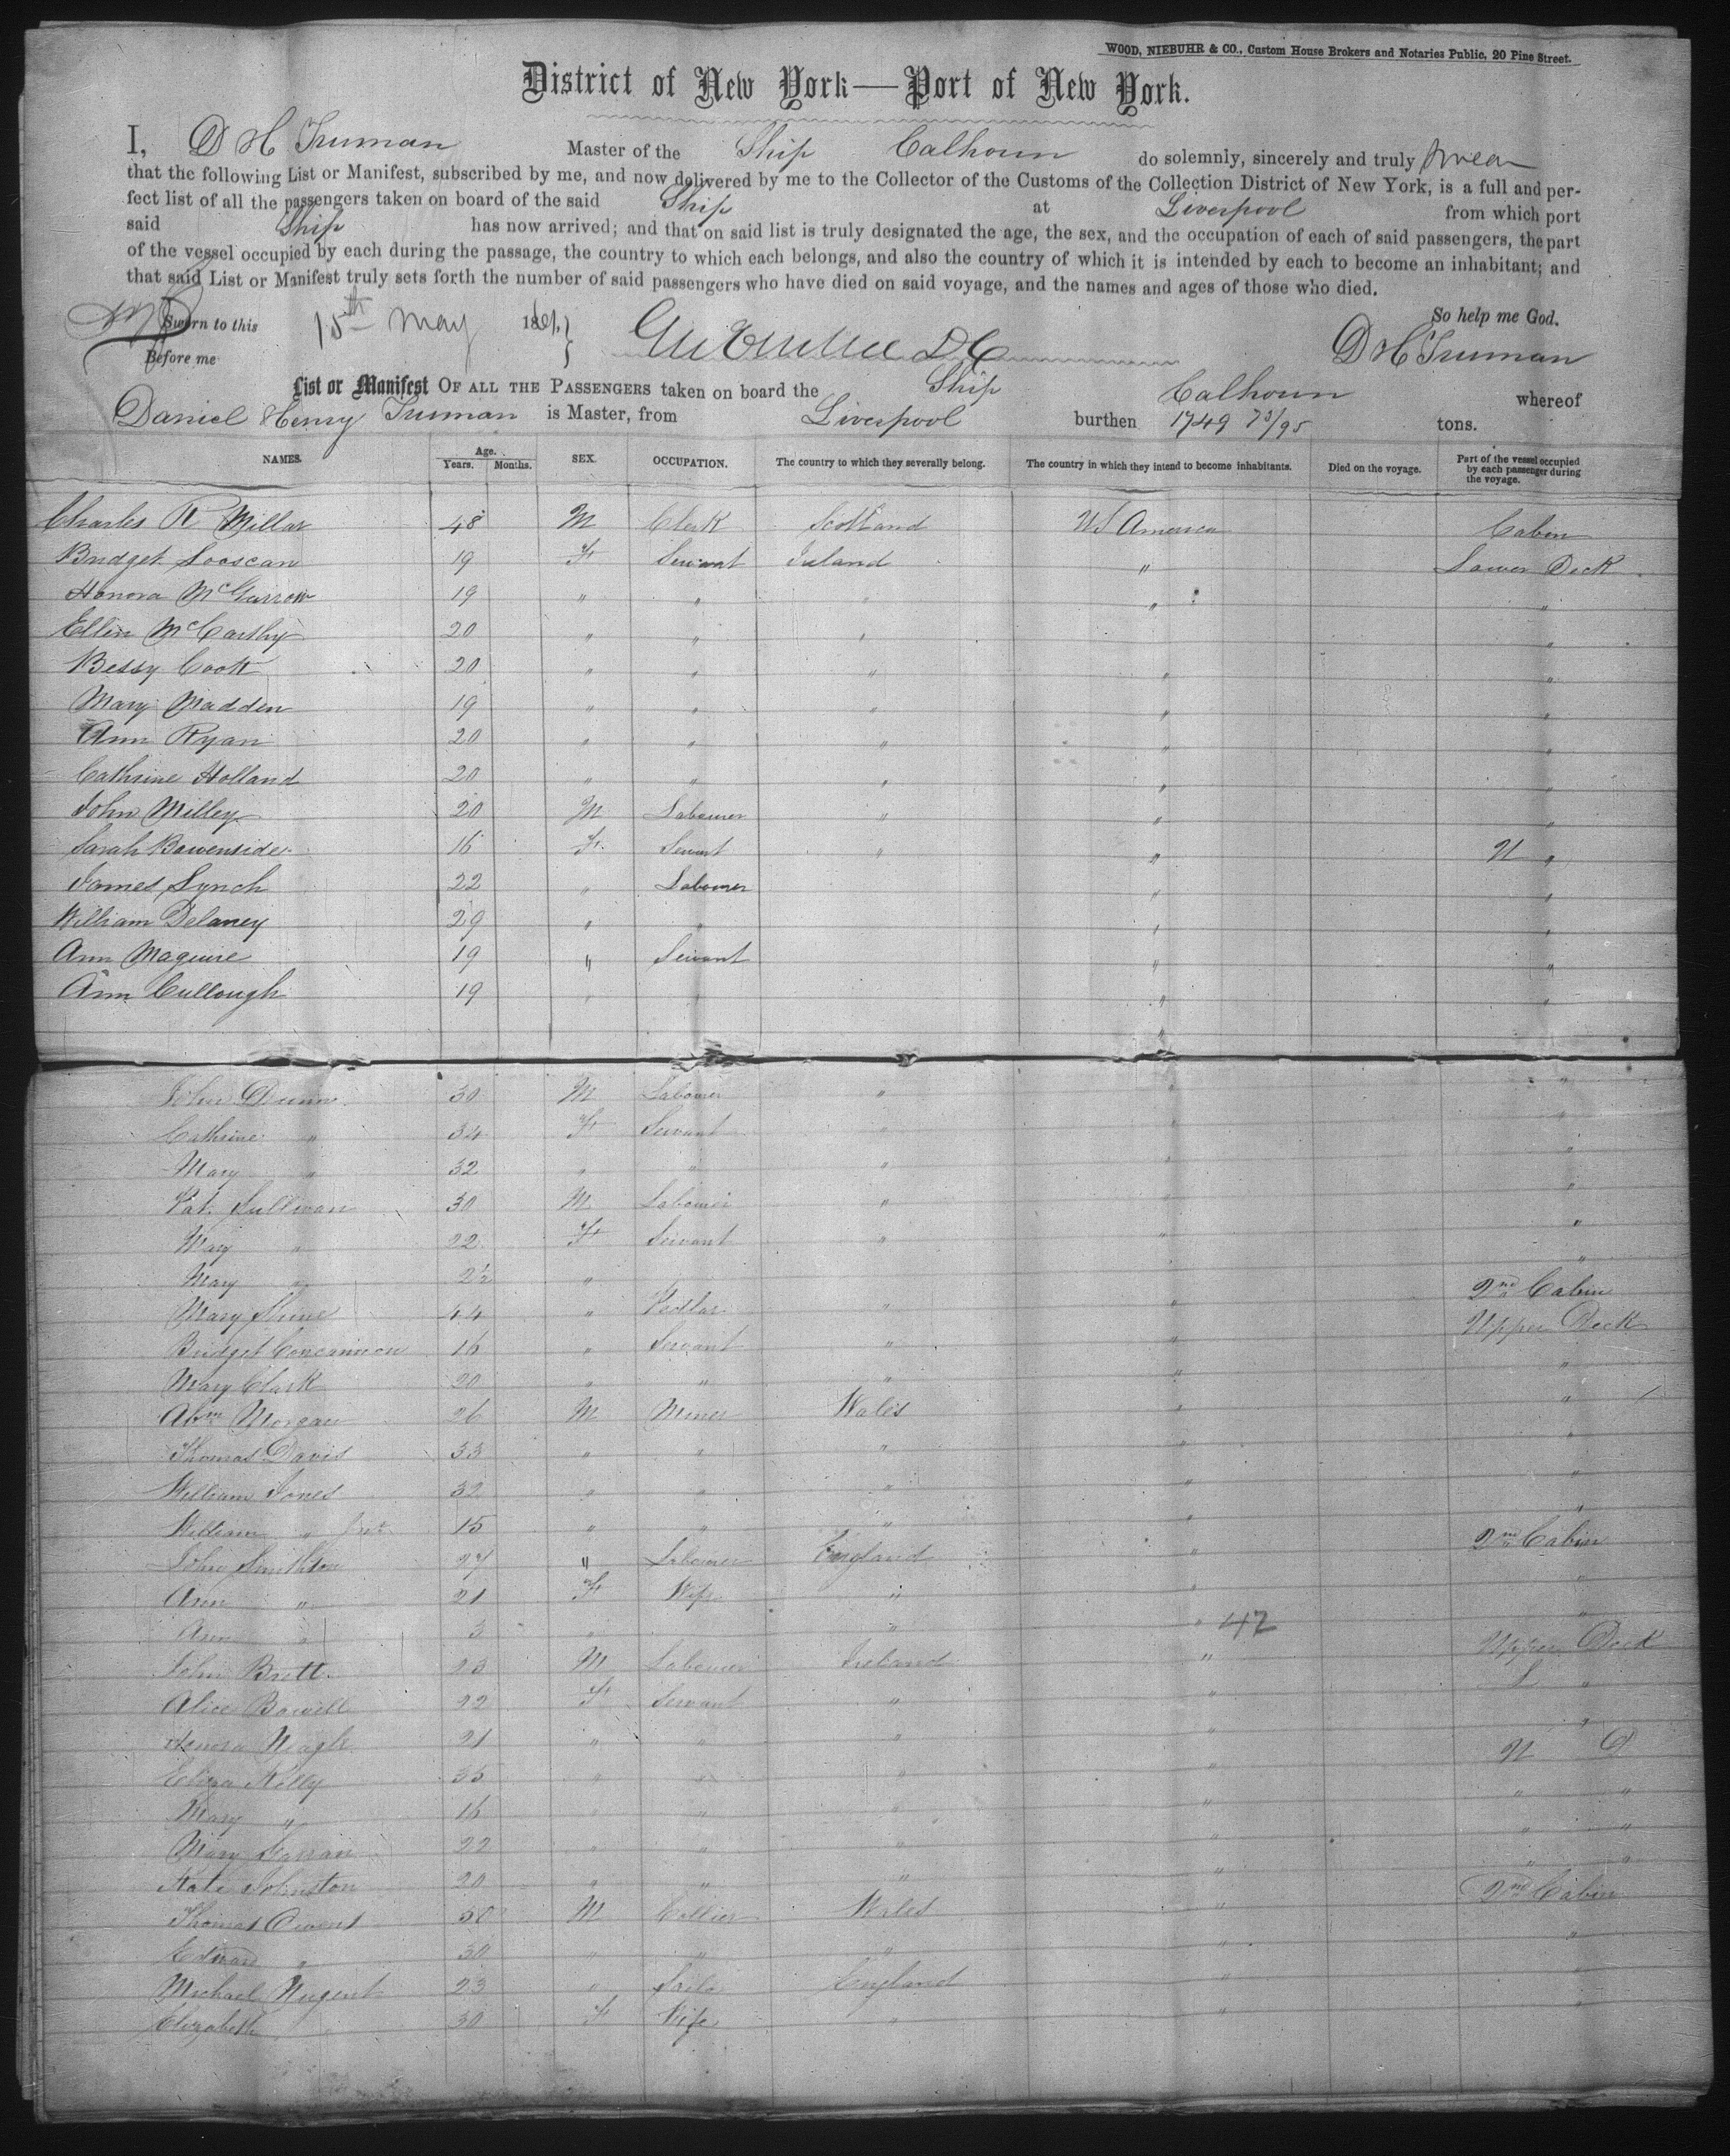 WOOD, NIEBUHR & CO., Custom House Brokers and Notaries Public, 20 Pine Street.
District of New York—Port of New York.
I, D H Truman Master of the Ship Calhoun do solemnly, sincerely and truly swear
that the following List or Manifest, subscribed by me, and now delivered by me to the Collector of the Customs of the Collection District of New York, is a full and per-
fect list of all the passengers taken on board of the said Ship at Liverpool from which port
said Ship has now arrived; and that on said list is truly designated the age, the sex, and the occupation of each of said passengers, the part
of the vessel occupied by each during the passage, the country to which each belongs, and also the country of which it is intended by each to become an inhabitant; and
that said List or Manifest truly sets forth the number of said passengers who have died on said voyage, and the names and ages of those who died.
So help me God.
Sworn to this 15th May 1861.
Before me
D H Truman
List or Manifest OF ALL THE PASSENGERS taken on board the Ship Calhoun whereof
Daniel Henry Truman is Master, from Liverpool burthen 1749 73/95 tons.
NAMES. Age. Years. Months. SEX. OCCUPATION. The country to which they severally belong. The country in which they intend to become inhabitants. Died on the voyage. Part of the vessel occupied by each passenger during the voyage.
Charles R Millar 48 M Clerk Scotland US America Cabin
Bridget Looscan 19 F Servant Ireland " Lower Deck
Honora McGarrow 19 " " " " "
Ellen McCarthy 20 " " " "
Bessy Cook 20 " " " " "
Mary Madden 19 " " " " "
Ann Ryan 20 " " " " "
Cathrine Holland 20 " " " " "
John Milley 20 M Labourer " " "
Sarah Bowensides 16 F. Servant " " U "
James Lynch 22 " Labourer " "
William Delaney 29 " " " "
Ann Maguire 19 " Servant " "
Ann Cullough 19 " " " "
"
John Dunn 30 M Labourer " " "
Cathrine " 34 F Servant " " "
Mary " 32 " " " " "
Pat. Sullivan 30 M Labourer " " "
Mary " 22 F Servant " " "
Mary " 2½ " "
Mary Shine 44 " Pedlar " " 2nd Cabin
Bridget Concannon 16 " Servant " " Upper Deck
Mary Clark 20 " " " " "
Abm Morgan 26 M Miner Wales " "
Thomas Davis 33 " " " " "
William Jones 32 " " " " "
William " 15 " " " " "
John Smithton 27 " Labourer England " 2nd Cabin
Ann " 21 F Wife " " "
Ann " 3 " " " 42 "
John Brett 23 M Labourer Ireland " Upper Deck
Alice Bowell 22 F Servant " " L "
Honora Neagle 21 " " " " "
Eliza Kelly 35 " " " " U D
Mary " 16 " " " " " "
Mary Farran 22 " " " " "
Kate Johnston 20 " " " " " "
Thomas Owens 50 M Collier Wales " 2nd Cabin
Edward " 30 " " " " "
Michael Nugent 23 " England " "
Elizabeth 30 F Wife " " "